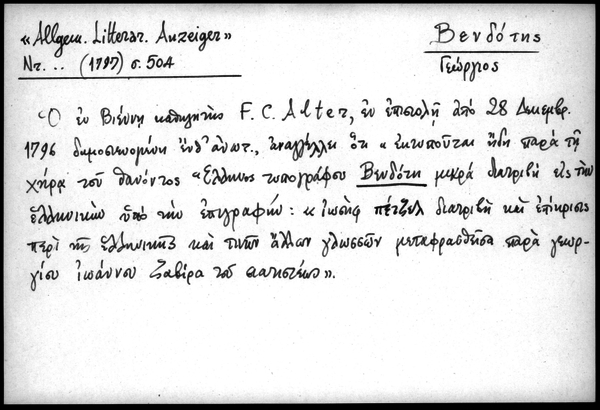 «Allgem. Litterar. Anzeiger»
Βενδότης
Nr. .. (1797) σ. 504
Γεώργιος
Ὁ ἐν Βιέννῃ καθηγητὴς F. C. Alter, ἐν ἐπιστολῇ ἀπὸ 28 Δεκεμβρ.
1796 δημοσιευομένῃ ἔνθ' ἀνωτ., ἀναγγέλλει ὅτι « ἐκτυποῦται ἤδη παρὰ τῇ
χήρᾳ τοῦ θανόντος "Ελληνος τυπογράφου Βενδότη μικρὰ διατριβὴ εἰς τὴν
ἑλληνικὴν ὑπὸ τὴν ἐπιγραφήν: « ἰωσὴφ πέτζελ διατριβὴ καὶ ἐπίκρισις
περὶ τῆς ἑλληνικῆς καὶ τινων ἄλλων γλωσσῶν μεταφρασθεῖσα παρὰ γεωρ-
γίου ἰωάννου ζαβίρα τοῦ σιατιστέως».